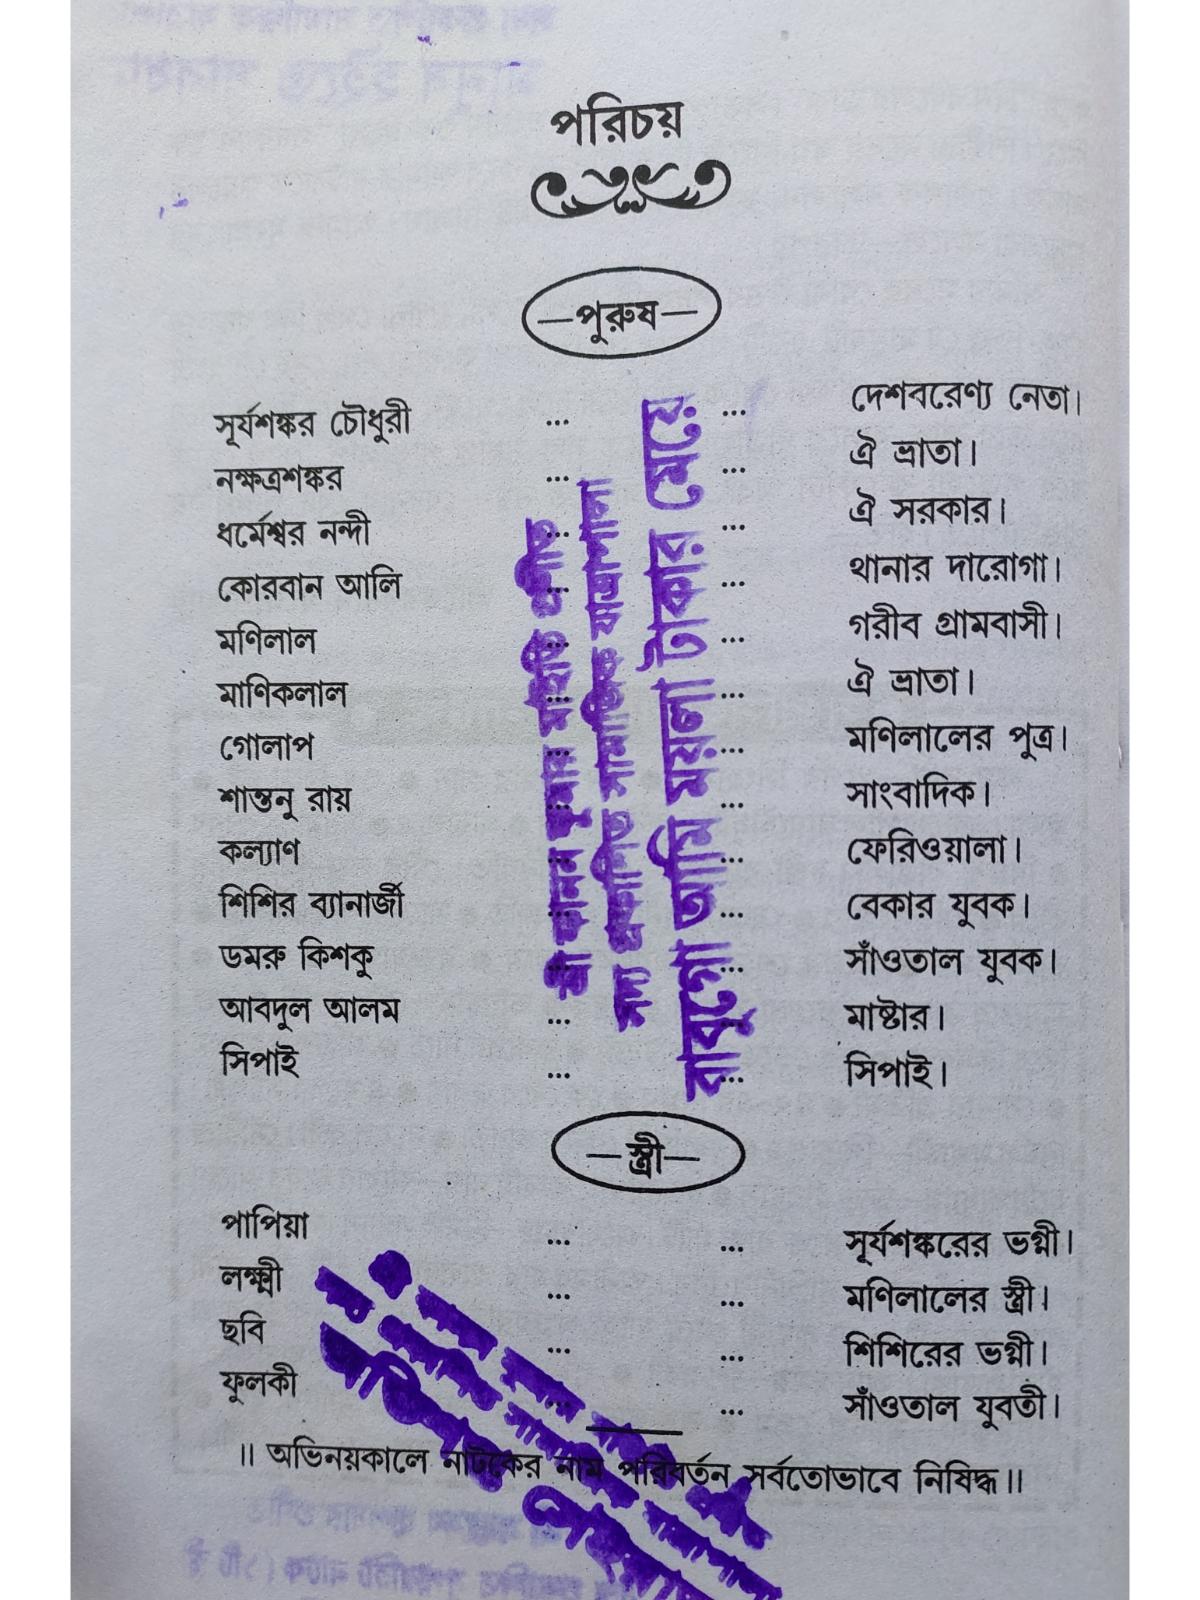 পরিচয়
—পুরুষ—
সূর্যশঙ্কর চৌধুরী ... ... দেশবরেণ্য নেতা।
নক্ষত্রশঙ্কর ... ... ঐ ভ্রাতা।
ধর্মেশ্বর নন্দী ... ... ঐ সরকার।
কোরবান আলি ... ... থানার দারোগা।
মণিলাল ... ... গরীব গ্রামবাসী।
মাণিকলাল ... ... ঐ ভ্রাতা।
গোলাপ ... ... মণিলালের পুত্র।
শান্তনু রায় ... ... সাংবাদিক।
কল্যাণ ... ... ফেরিওয়ালা।
শিশির ব্যানার্জী ... ... বেকার যুবক।
ডমরু কিশকু ... ... সাঁওতাল যুবক।
আবদুল আলম ... ... মাষ্টার।
সিপাই ... ... সিপাই।
শ্রী কানন কুমার মাইতি প্রণীত
সদ্য প্রকাশিত সামাজিক যাত্রাপালা
বাবুগো আমি ময়লা টাকার মেয়ে
—স্ত্রী—
পাপিয়া ... ... সূর্যশঙ্করের ভগ্নী।
লক্ষ্মী ... ... মণিলালের স্ত্রী।
ছবি ... ... শিশিরের ভগ্নী।
ফুলকী ... ... সাঁওতাল যুবতী।
॥ অভিনয়কালে নাটকের নাম পরিবর্তন সর্বতোভাবে নিষিদ্ধ॥